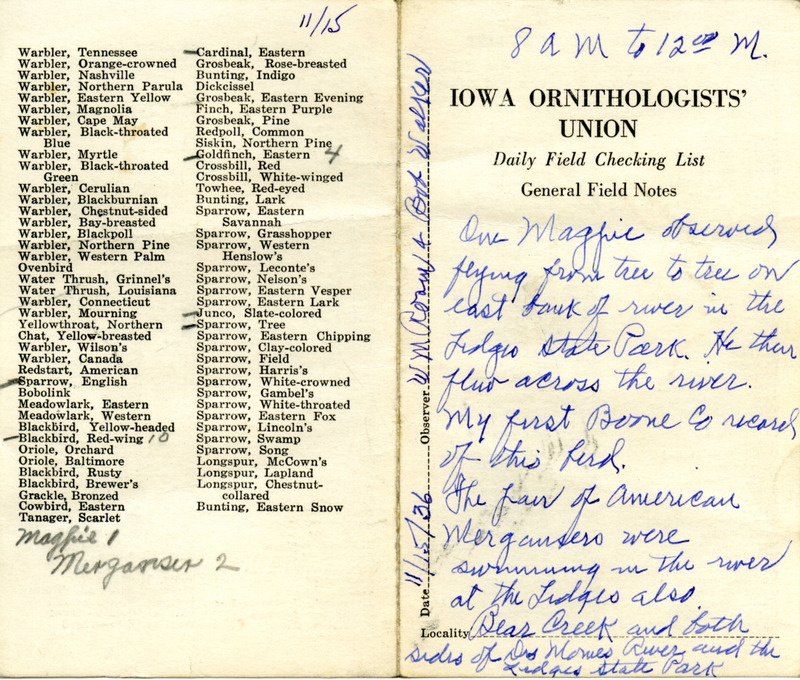 11/15
Warbler, Tennessee
Warbler, Orange-crowned
Warbler, Nashville
Warbler, Northern Parula
Warbler, Eastern Yellow
Warbler, Magnolia
Warbler, Cape May
Warbler, Black-throated
Blue
Warbler, Myrtle
Warbler, Black-throated
Green
Warbler, Cerulian
Warbler, Blackburnian
Warbler, Chestnut-sided
Warbler, Bay-breasted
Warbler, Blackpoll
Warbler, Northern Pine
Warbler, Western Palm
Ovenbird
Water Thrush, Grinnel's
Water Thrush, Louisiana
Warbler, Connecticut
Warbler, Mourning
Yellowthroat, Northern
Chat, Yellow-breasted
Warbler, Wilson's
Warbler, Canada
Redstart, American
Sparrow, English
Bobolink
Meadowlark, Eastern
Meadowlark, Western
Blackbird, Yellow-headed
Blackbird, Red-wing 10
Oriole, Orchard
Oriole, Baltimore
Blackbird, Rusty
Blackbird, Brewer's
Grackle, Bronzed
Cowbird, Eastern
Tanager, Scarlet
Magpie 1
Merganser 2
Cardinal, Eastern
Grosbeak, Rose-breasted
Bunting, Indigo
Dickcissel
Grosbeak, Eastern Evening
Finch, Eastern Purple
Grosbeak, Pine
Redpoll, Common
Siskin, Northern Pine
Goldfinch, Eastern 4
Crossbill, Red
Crossbill, White-winged
Towhee, Red-eyed
Bunting, Lark
Sparrow, Eastern
Savannah
Sparrow, Grasshopper
Sparrow, Western
Henslow's
Sparrow, Leconte's
Sparrow, Nelson's
Sparrow, Eastern Vesper
Sparrow, Eastern Lark
Junco, Slate-colored
Sparrow, Tree
Sparrow, Eastern Chipping
Sparrow, Clay-colored
Sparrow, Field
Sparrow, Harris's
Sparrow, White-crowned
Sparrow, Gambel's
Sparrow, White-throated
Sparrow, Eastern Fox
Sparrow, Lincoln's
Sparrow, Swamp
Sparrow, Song
Longspur, McCown's
Longspur, Lapland
Longspur, Chestnut-
collared
Bunting, Eastern Snow
Date 11/15/36 Observer W M Rosene & Bob Walker
8 A M to 12 00 M.
IOWA ORNITHOLOGISTS'
UNION
Daily Field Checking List
General Field Notes
One Magpie observed
flying from tree to tree on
east bank of river in the
Ledges State Park. He then
flew across the river.
My first Boone Co record
of this bird.
The pair of American
Mergansers were
swimming in the river
at the Ledges also.
Locality Bear Creek and both
sides of Des Moines River and the
Ledges State Park